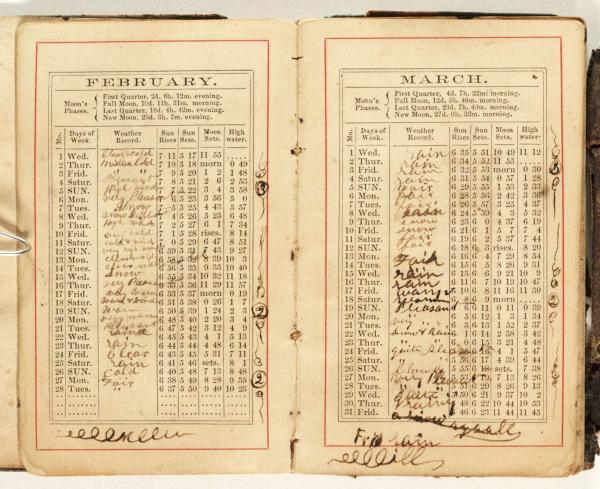 FEBRUARY.
Moon's Phases.
First Quarter, 2d. 8h. 12m. evening.
Full Moon, 10d. 11h. 31m. morning.
Last Quarter, 18d. 4h. 42m. evening.
New Moon, 25d. 3h. 7m. evening.
Mo. Days of Week. Weather Record. Sun Rises Sun Sets. Moon Sets. High water.
1 Wed. 7 11 5 17 11 55
2 Thur. 7 10 5 18 morn 0 49
3 Fri. 7 9 5 20 1 2 1 48
4 Satur. Pleasant 7 8 5 21 2 6 2 53
5 SUN. 7 7 5 22 3 4 3 58
6 Mon. very Pleasant 6 5 23 3 56 5 0
7 Tues. Snow 5 5 25 4 43 5 57
8 Wed. 7 4 5 26 5 25 6 48
9 Thur. 7 2 5 27 6 1 7 34
10 Fri. 7 1 5 28 rises. 8 14
11 Satur. 7 0 5 29 6 47 8 51
12 SUN. 6 59 5 31 7 43 9 27
13 Mon. 6 58 5 32 8 39 10 3
14 Tues. 6 56 5 33 9 35 10 40
15 Wed. Snow 6 55 5 34 10 32 11 18
16 Thur. very Pleasant 6 33 5 36 11 29 11 57
17 Frid. 6 53 5 37 morn 0 19
18 Satur. 6 51 5 38 0 26 1 7
19 SUN. Warm 6 50 5 39 1 24 2 3
20 Mon. very warm 6 48 5 40 2 20 3 4
21 Tues. Pleasant 6 47 5 42 3 12 4 9
22 Wed. rain 6 45 5 43 4 1 5 13
23 Thur. rain 6 44 5 44 4 48 6 14
24 Frid. Clear 6 43 5 45 5 31 7 11
25 Satur. rain 6 41 5 46 sets. 8 1
26 SUN. Cold 6 40 5 48 7 13 8 48
27 Mon. Fair 6 38 5 49 8 28 9 35
28 Tues. " 6 37 5 50 9 40 10 23
MARCH.
Moon's Phases.
First Quarter, 4d. 7h. 22m. morning.
Full Moon, 12d. 5h. 46m. morning.
Last Quarter, 20d. 7h. 40m. morning.
New Moon, 27d. 0h. 32m. morning.
Mo. Days of Week. Weather Record. Sun Rises Sun Sets. Moon Sets. High water.
1 Wed. rain 6 35 5 51 10 49 11 12
2 Thur. rain 6 34 5 52 11 55
3 Frid. rain 6 32 5 53 morn 0 30
4 Satur. 6 31 5 54 0 57 1 28
5 SUN. Fair 6 29 5 55 1 53 2 33
6 Mon. Fair 6 28 5 56 2 42 3 38
7 Tues. Fair 6 26 5 57 3 25 4 37
8 Wed. 6 24 5 59 4 3 5 32
9 Thur. snow 6 23 6 0 4 37 6 19
10 Fri. snow 6 21 6 1 5 7 7 4
11 Satur. Fair 6 19 6 2 5 37 7 44
12 SUN. Fair 6 18 6 3 rises. 8 20
13 Mon. Fair 6 16 6 4 7 29 8 54
14 Tues. Fair 6 15 6 5 8 26 9 31
15 Wed. rain 6 13 6 6 9 21 10 9
16 Thur. rain 6 11 6 7 10 19 10 47
17 Frid. warm 6 10 6 8 11 15 11 30
18 Satur. warm 6 8 6 9 morn
19 SUN. Pleasant 6 6 6 11 0 11 0 39
20 Mon. 5 6 12 1 3 1 34
21 Tues. 3 6 13 1 52 2 37
22 Wed. 1 6 14 2 38 3 42
23 Thur. 0 6 15 3 21 4 48
24 Frid. Quite Pleasant 4 1 5 47
25 Satur. 6 17 4 39 6 44
26 SUN. Cloudy 5 55 6 18 sets. 7 38
27 Mon. Very Pleasant 6 19 7 13 8 25
28 Tues. 5 51 6 20 8 26 9 13
29 Wed. 5 50 6 21 9 37 10 2
30 Thur. 5 48 6 22 10 44 10 53
31 Frid. 5 46 6 23 11 44 11 45
a snow squall
Frid rain